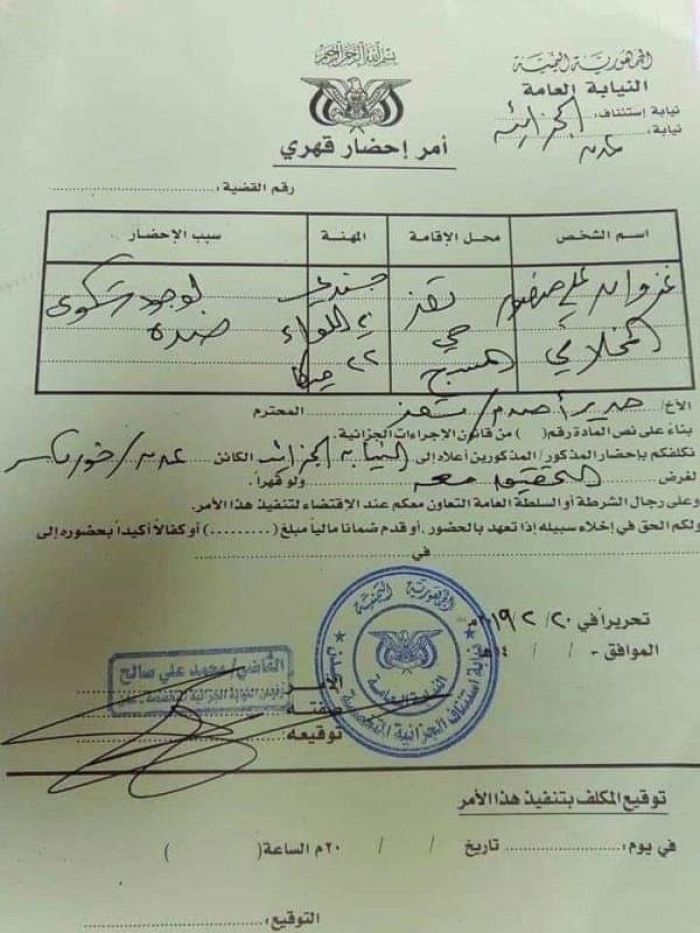 بسم الله الرحمن الرحيم
الجمهورية اليمنية
النيابة العامة
نيابة إستئناف: الجزائية
نيابة: عدن
أمر إحضار قهري
رقم القضية:
اسم الشخص محل الإقامة المهنة سبب الإحضار
غزوان علي منصور تعز جندي لوجود شكوى
المخلافي حي في اللواء ضده
المسبح ٢٢ ميكا
الأخ/ مدير أمن م/ تعز المحترم
بناءً على نص المادة رقم ( ) من قانون الإجراءات الجزائية.
نكلفكم بإحضار المذكور/ المذكورين أعلاه إلى النيابة الجزائية الكائن عدن/ خور مكسر
لغرض التحقيق معه ولو قهراً.
وعلى رجال الشرطة أو السلطة العامة التعاون معكم عند الإقتضاء لتنفيذ هذا الأمر.
ولكم الحق في إخلاء سبيله إذا تعهد بالحضور. أو قدم ضمانا مالياً مبلغ (.........) أو كفالاً أكيداً بحضوره إلى
في
تحريراً في ٢٠/ ٢/ ٢٠١٩م
الموافق - / / ١٤هـ
الجمهورية اليمنية
النيابة العامة
نيابة استئناف الجزائية المتخصصة عدن
القاضي/ محمد علي صالح
رئيس النيابة الجزائية المتخصصة - عدن
الآمر
صفته
توقيعه:
توقيع المكلف بتنفيذ هذا الأمر
في يوم: تاريخ / / ٢٠م الساعة( )
التوقيع: